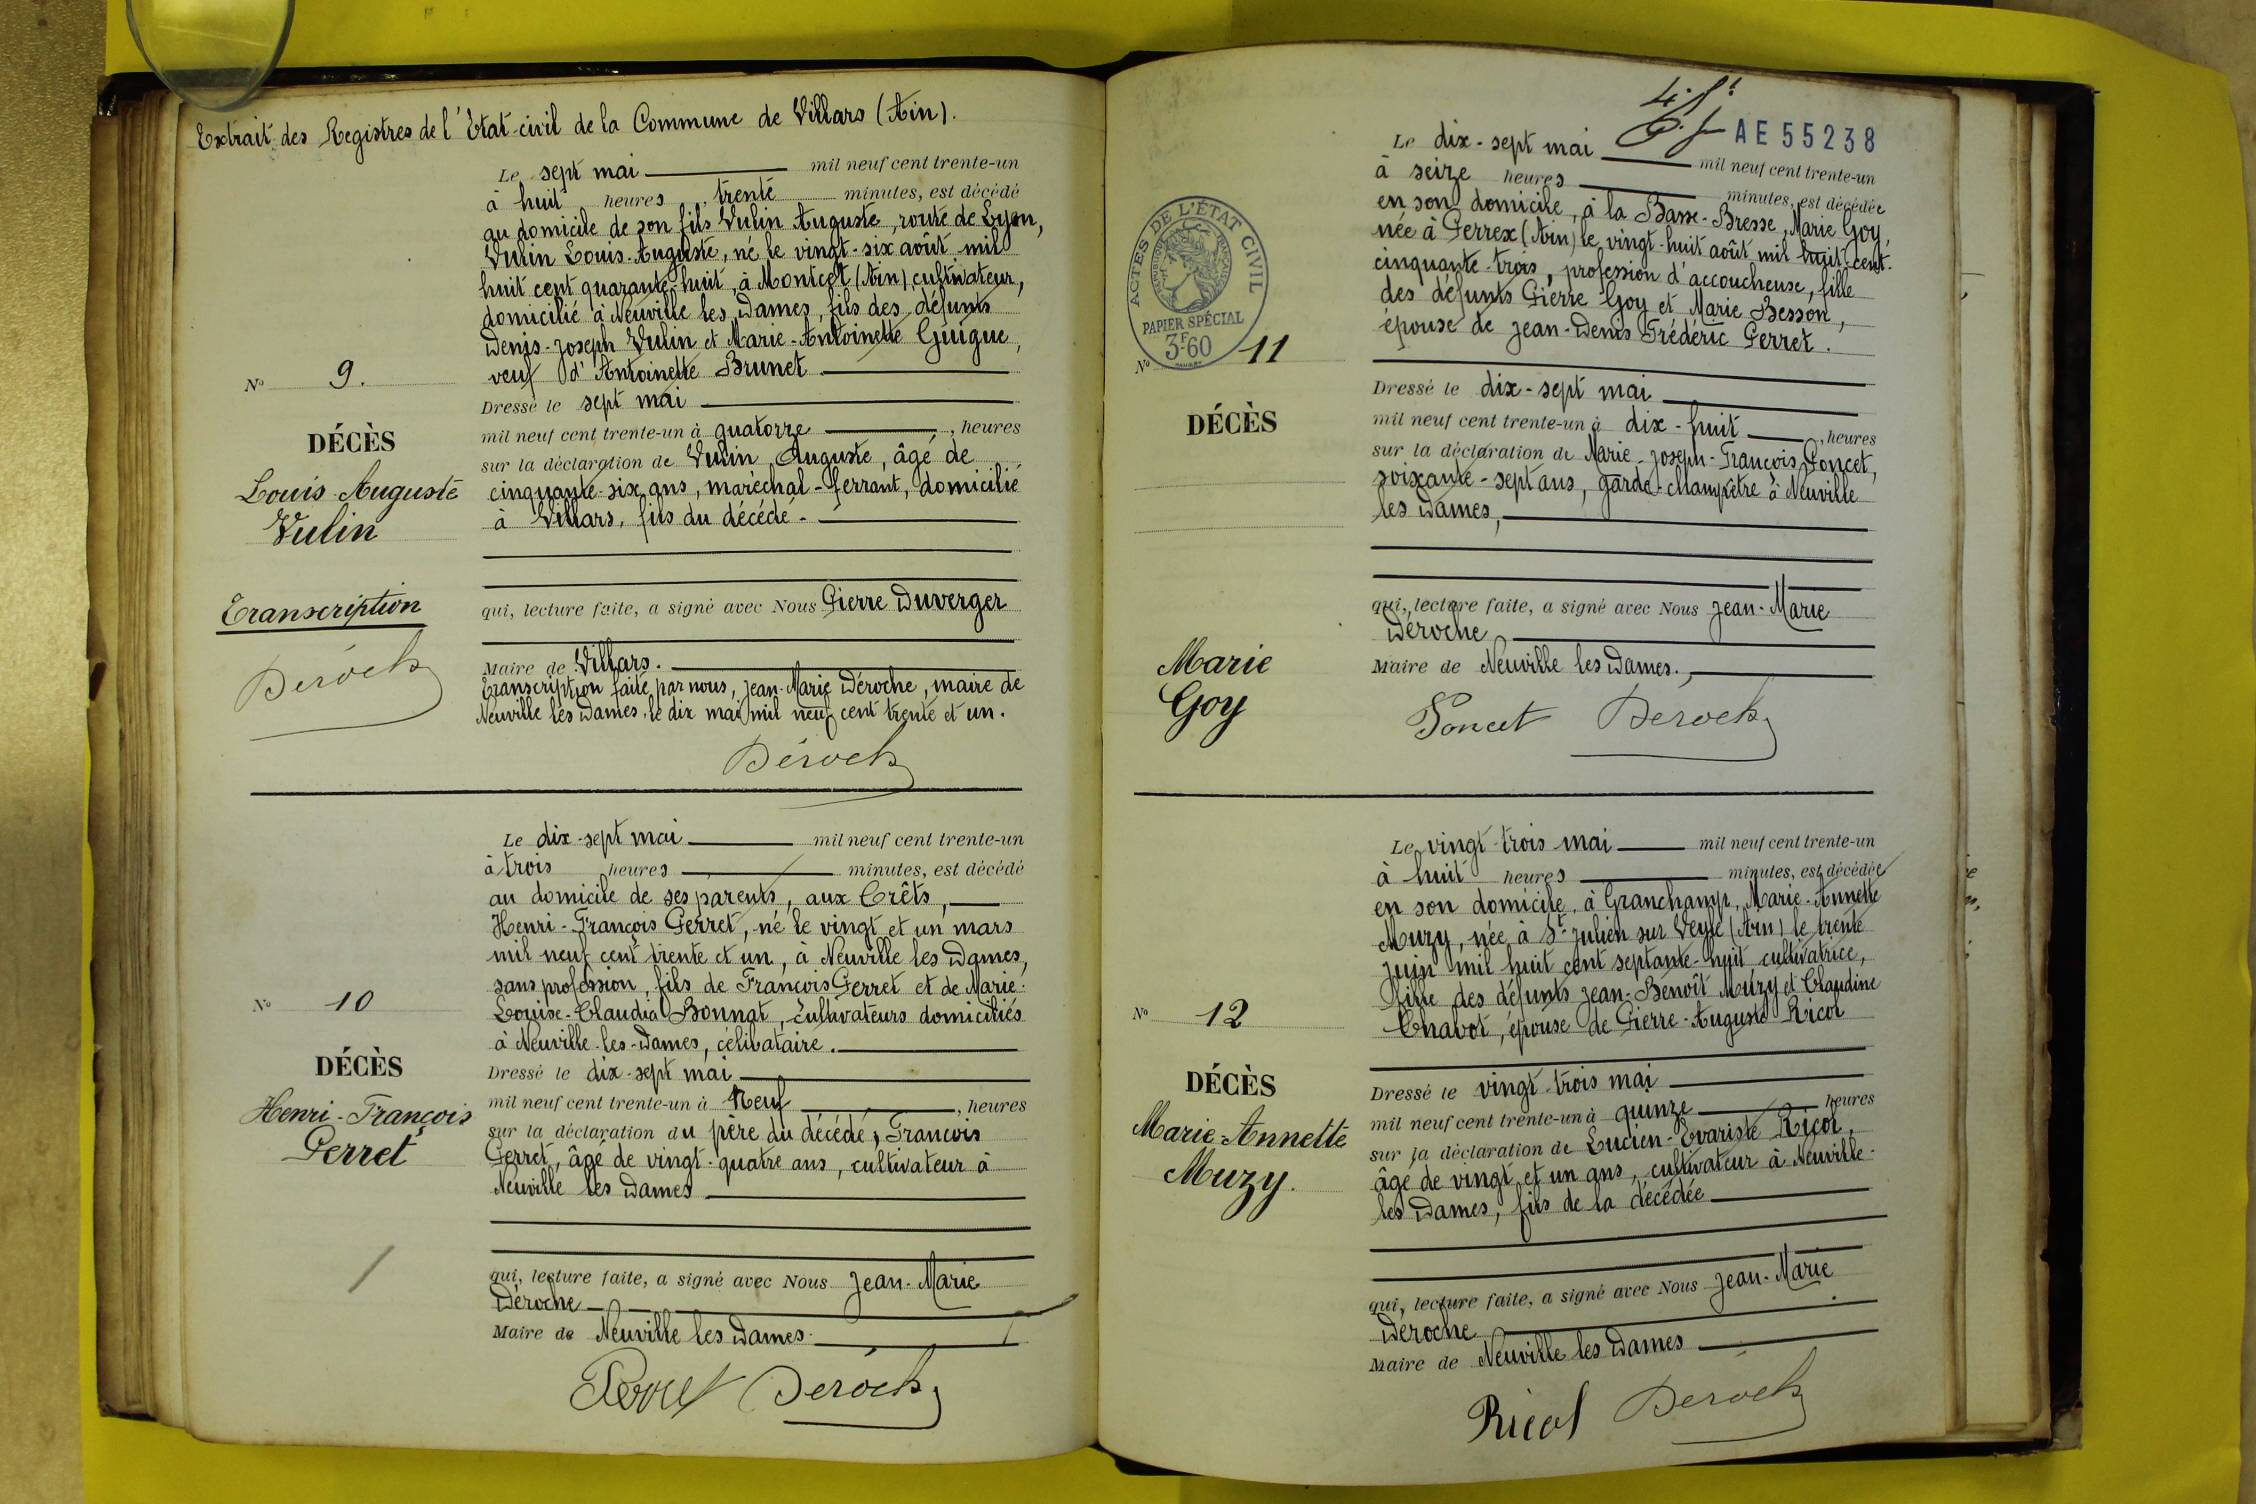 Extrait des Registres de l'Etat-civil de la Commune de Villars (Ain).
Le sept mai mil neuf cent trente-un
à huit heures trente minutes, est décédé
au domicile de son fils Vulin Auguste, route de Lyon,
Vulin Louis-Auguste, né le vingt-six août mil
huit cent quarante-huit, à Montcet (Ain) cultivateur,
domicilié à Neuville les Dames, fils des défunts
Denis-Joseph Vulin et Marie-Antoinette Guigue,
veuf d'Antoinette Brunet
N° 9.
Dressé le sept mai
mil neuf cent trente-un à quatorze, heures
DÉCÈS
sur la déclaration de Vulin Auguste, âgé de
Louis-Auguste
cinquante-six ans, maréchal-ferrant, domicilié
Vulin
à Villars, fils du décédé.
Transcription
qui, lecture faite, a signé avec Nous Pierre Duverger
Déroche
Maire de Villars.
Transcription faite par nous, Jean-Marie Déroche, maire de
Neuville les Dames, le dix mai mil neuf cent trente et un.
Déroche
Le dix-sept mai mil neuf cent trente-un
à trois heures minutes, est décédé
au domicile de ses parents, aux Crêts,
Henri-François Perret, né le vingt et un mars
mil neuf cent trente et un, à Neuville les Dames,
sans profession, fils de François Perret et de Marie-
Louise-Claudia Bonnat, cultivateurs domiciliés
à Neuville-les-Dames, célibataire.
N° 10
DÉCÈS
Henri-François
Perret
Dressé le dix-sept mai
mil neuf cent trente-un à Neuf, heures
sur la déclaration du père du décédé, François
Perret, âgé de vingt-quatre ans, cultivateur à
Neuville les Dames
qui, lecture faite, a signé avec Nous Jean-Marie
Déroche
Maire de Neuville les Dames
Perret Déroche
AE 55238
Le dix-sept mai mil neuf cent trente-un
à seize heures minutes, est décédée
en son domicile, à la Basse-Bresse, Marie Goy,
née à Perrex (Ain) le vingt-huit août mil huit-cent-
cinquante-trois, profession d'accoucheuse, fille
des défunts Pierre Goy et Marie Besson,
épouse de Jean-Denis Frédéric Perret.
ACTES DE L'ÉTAT CIVIL
RÉPUBLIQUE FRANÇAISE
PAPIER SPÉCIAL
3F60
N° 11
DÉCÈS
Marie
Goy
Dressé le dix-sept mai
mil neuf cent trente-un à dix-huit, heures
sur la déclaration de Marie-Joseph-François Poncet,
soixante-sept ans, garde-champêtre à Neuville
les Dames,
qui, lecture faite, a signé avec Nous Jean-Marie
Déroche
Maire de Neuville les Dames.
Poncet Déroche
Le vingt-trois mai mil neuf cent trente-un
à huit heures minutes, est décédée
en son domicile, à Granchamp, Marie-Annette
Muzy, née à St-Julien sur Veyle (Ain) le trente
juin mil huit cent septante-huit cultivatrice,
fille des défunts Jean-Benoît Muzy et Claudine
Chavot, épouse de Pierre-Auguste Ricol
N° 12
DÉCÈS
Marie-Annette
Muzy.
Dressé le vingt-trois mai
mil neuf cent trente-un à quinze heures
sur la déclaration de Lucien-Evariste Ricol,
âgé de vingt et un ans, cultivateur à Neuville-
les Dames, fils de la décédée
qui, lecture faite, a signé avec Nous Jean-Marie
Déroche
Maire de Neuville les Dames
Ricol Déroche